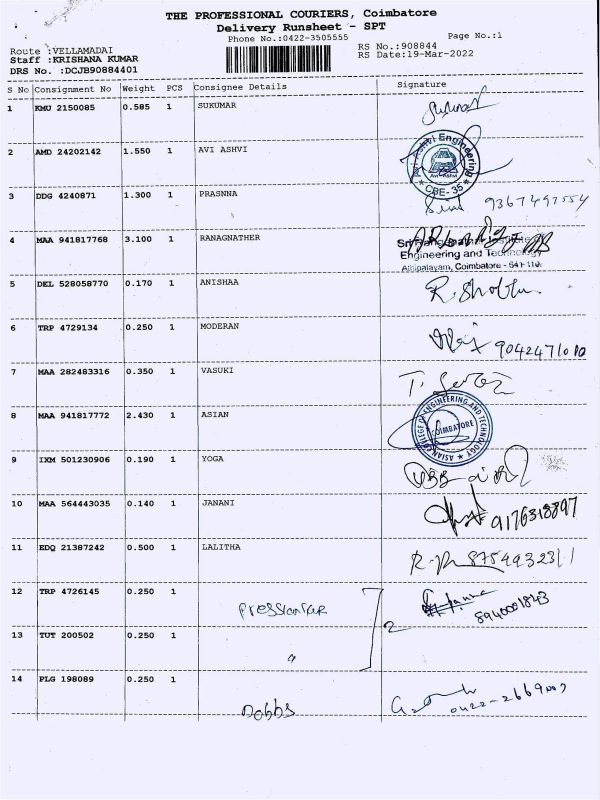 THE PROFESSIONAL COURIERS, Coimbatore
Delivery Runsheet - SPT
Phone No.:0422-3505555 Page No.:1
Route :VELLAMADAI RS No.:908844
Staff :KRISHANA KUMAR RS Date:19-Mar-2022
DRS No. :DCJB90884401
S No Consignment No Weight PCS Consignee Details Signature
1 KMU 2150085 0.585 1 SUKUMAR
2 AMD 24202142 1.550 1 AVI ASHVI
Avi Ashvi Engineering
CBE- 35
3 DDG 4240871 1.300 1 PRASNNA
9367497554
4 MAA 941817768 3.100 1 RANAGNATHER
Engineering and Technology
Coimbatore - 641 110
5 DEL 528058770 0.170 1 ANISHAA
R. Shobha
6 TRP 4729134 0.250 1 MODERAN
9042471010
7 MAA 282483316 0.350 1 VASUKI
8 MAA 941817772 2.430 1 ASIAN
ASIAN COLLEGE OF ENGINEERING AND TECHNOLOGY
COIMBATORE
9 IXM 501230906 0.190 1 YOGA
10 MAA 564443035 0.140 1 JANANI
9176318897
11 EDQ 21387242 0.500 1 LALITHA
12 TRP 4726145 0.250 1
8940001843
2
13 TUT 200502 0.250 1
14 PLG 198089 0.250 1
Dobbs
0422-2669009